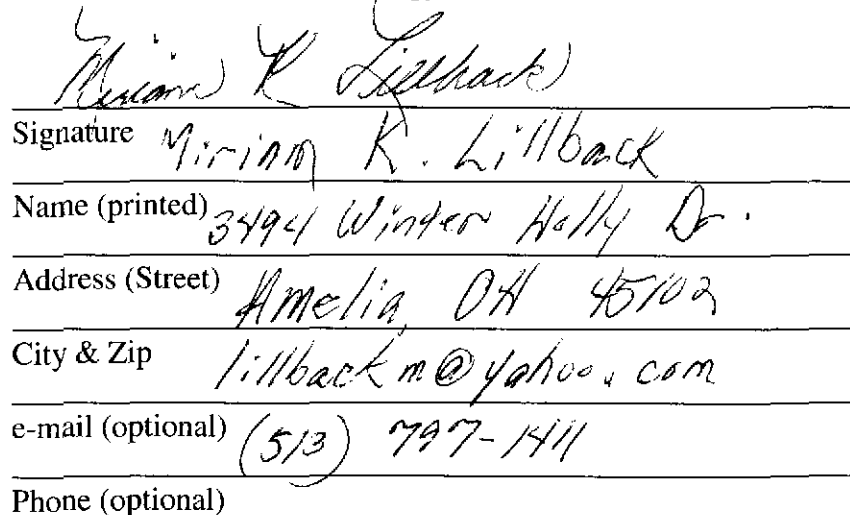 Miriam K Lillback
Signature Miriam K. Lillback
Name (printed) 3494 Winter Holly Dr.
Address (Street) Amelia, OH 45102
City & Zip lillbackm@yahoo.com
e-mail (optional) (513) 797-1411
Phone (optional)